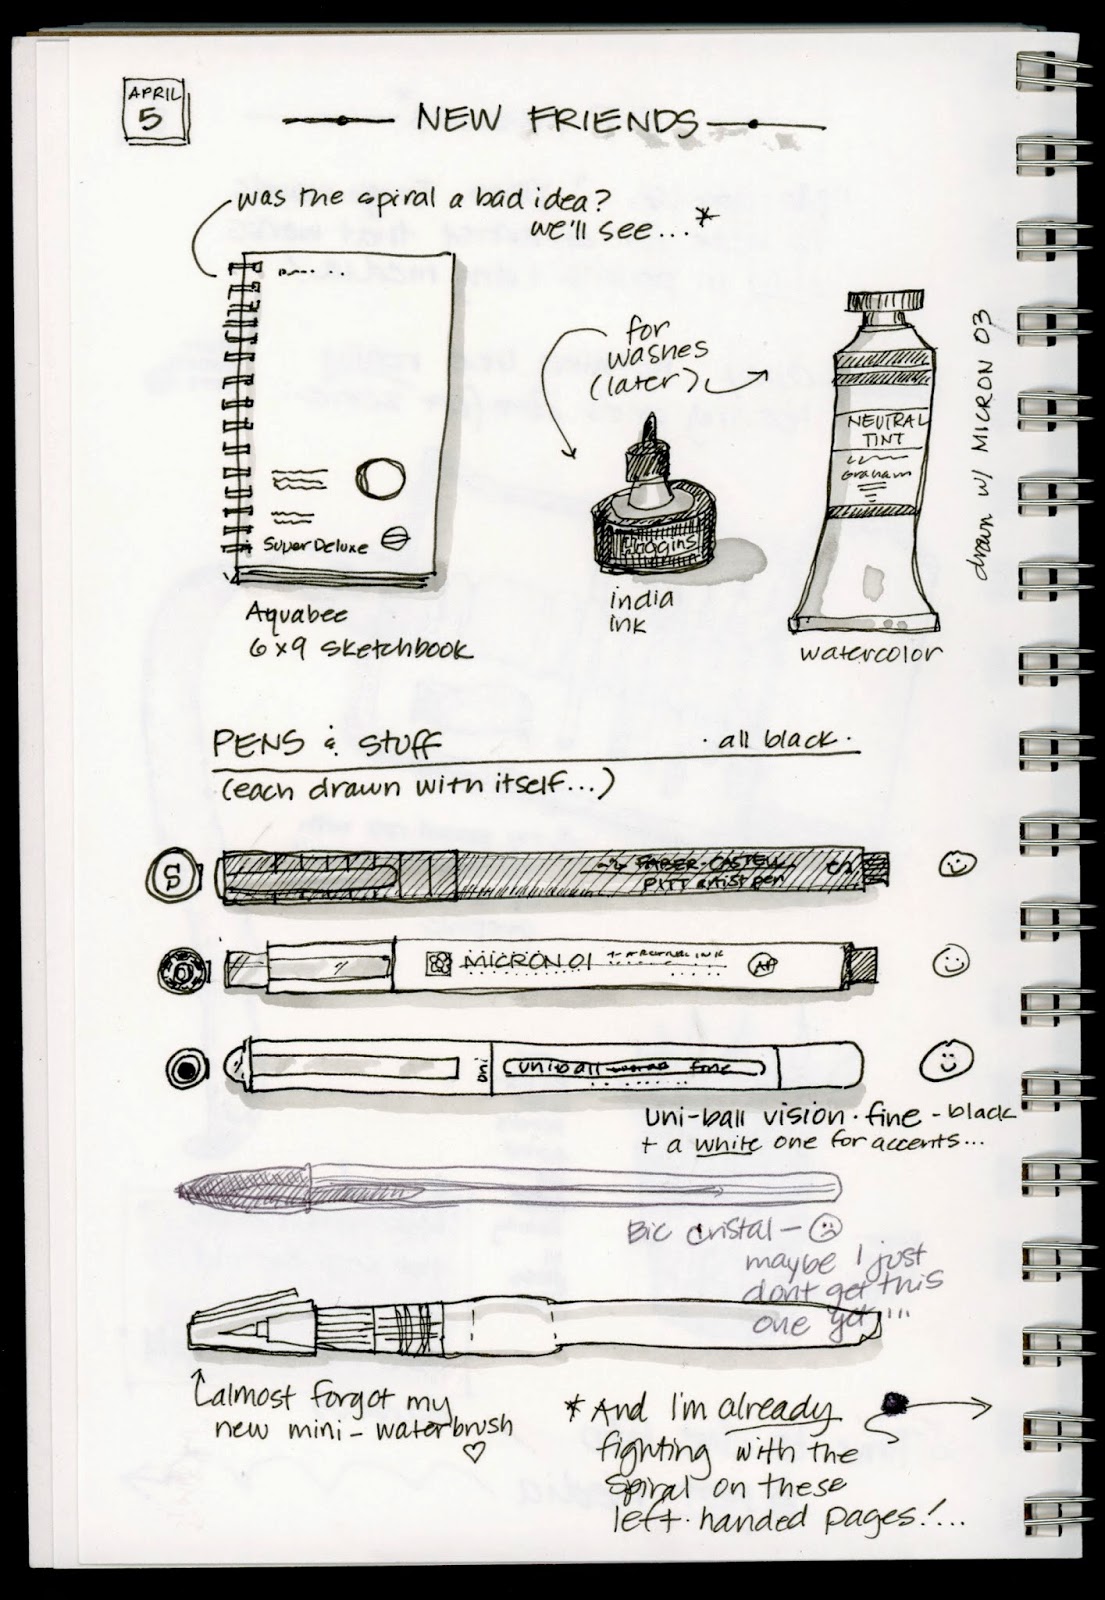 APRIL
5
NEW FRIENDS
was the spiral a bad idea?
we'll see...*
Super Deluxe
Aquabee
6x9 sketchbook
for
washes
(later)
Higgins
india
ink
NEUTRAL
TINT
Graham
watercolor
drawn w/ MICRON 03
PENS & stuff
· all black ·
(each drawn with itself...)
S
FABER-CASTELL
PITT artist pen
MICRON 01
AP
uni
uniball fine
uni-ball vision · fine - black
+ a white one for accents...
Bic cristal — ☹
maybe I just
dont get this
one yet!!!
almost forgot my
new mini - waterbrush
♡
* And I'm already
fighting with the
spiral on these
left-handed pages!...